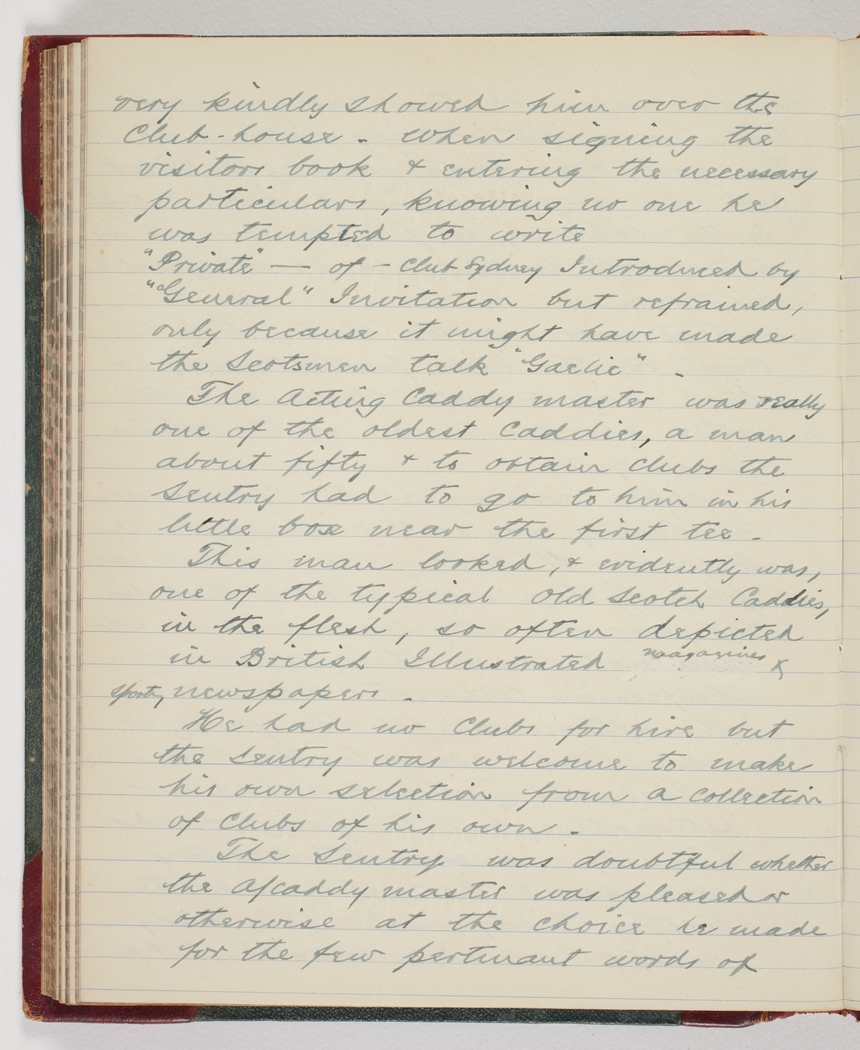 very kindly showed him over the
Club-house - When signing the
visitors book & entering the necessary
particulars, knowing no one he
was tempted to write
"Private" — of - Club Sydney Introduced by
"General" Invitation but refrained,
only because it might have made
the Scotsmen talk "Gaelic" -
The Acting Caddy master was really
one of the oldest Caddies, a man
about fifty & to obtain clubs the
Sentry had to go to him in his
little box near the first tee -
This man looked, & evidently was,
one of the typical old Scotch Caddies,
in the flesh, so often depicted
in British Illustrated magazines &
sporty, newspapers -
He had no Clubs for hire but
the Sentry was welcome to make
his own selection from a collection
of Clubs of his own -
The Sentry was doubtful whether
the A/caddy master was pleased or
otherwise at the choice he made
for the few pertinant words of